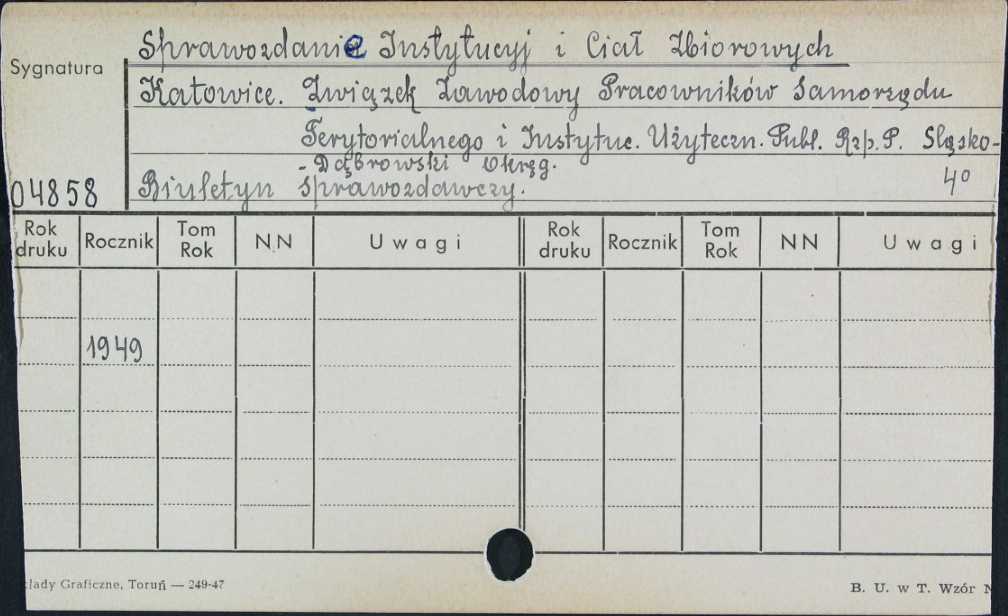 Sprawozdanie Instytucyj i Ciał Zbiorowych
Sygnatura
Katowice. Związek Zawodowy Pracowników Samorządu
Terytorialnego i Instytuc. Użyteczn. Publ. Rzp. P. Śląsko-
-Dąbrowski Okręg.
04858 Biuletyn sprawozdawczy. 4°
Rok druku Rocznik Tom Rok NN Uwagi Rok druku Rocznik Tom Rok NN Uwagi
1949
łady Graficzne, Toruń — 249-47 B. U. w T. Wzór N